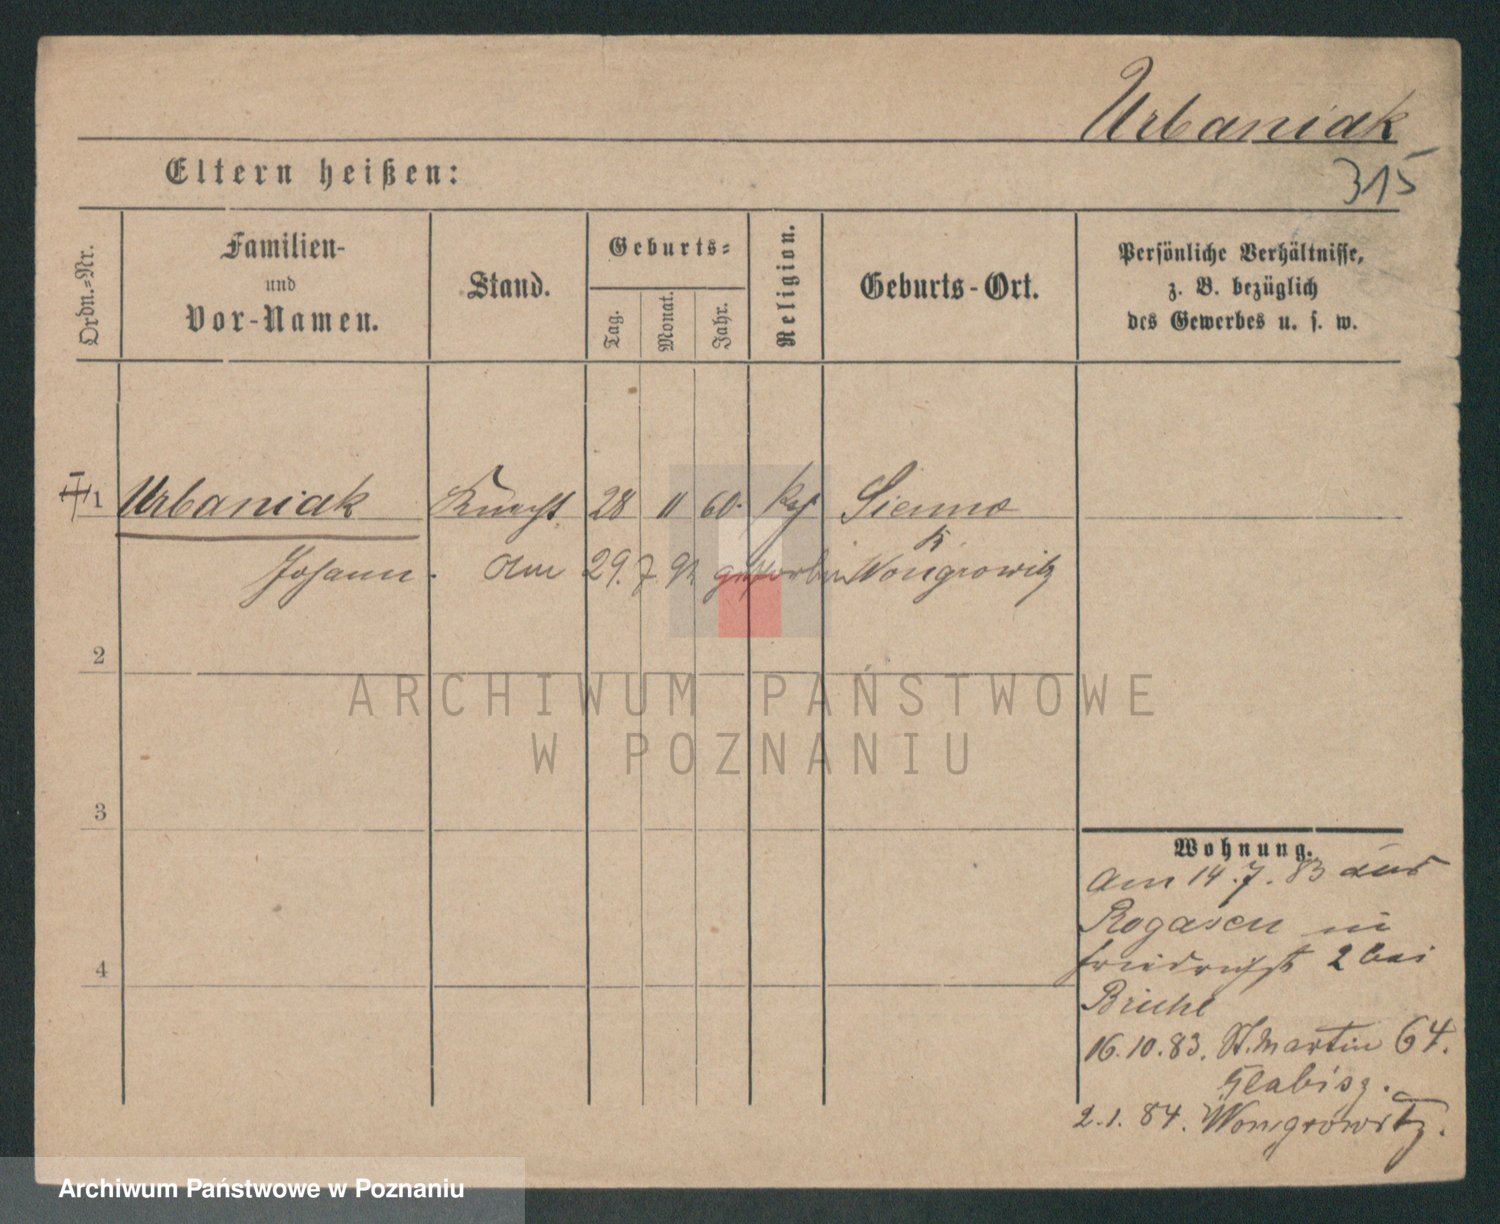 Urbaniak
315
Eltern heißen:
Ordn.-Nr.
Familien-
und
Vor-Namen.
Stand.
Geburts-
Tag.
Monat.
Jahr.
Religion.
Geburts-Ort.
Persönliche Verhältnisse,
z. B. bezüglich
des Gewerbes u. s. w.
1 Urbaniak Knecht 28 11 60. Sienno
K.
Johann. Am 29. 7 92 gestorben Wongrowitz
2
ARCHIWUM PAŃSTWOWE
W POZNANIU
3
4
Wohnung.
Am 14.7.83 aus
Rogasen in
Friedrichst 2 bei
16.10.83. St. Martin 64.
2.1.84. Wongrowitz.
Archiwum Państwowe w Poznaniu